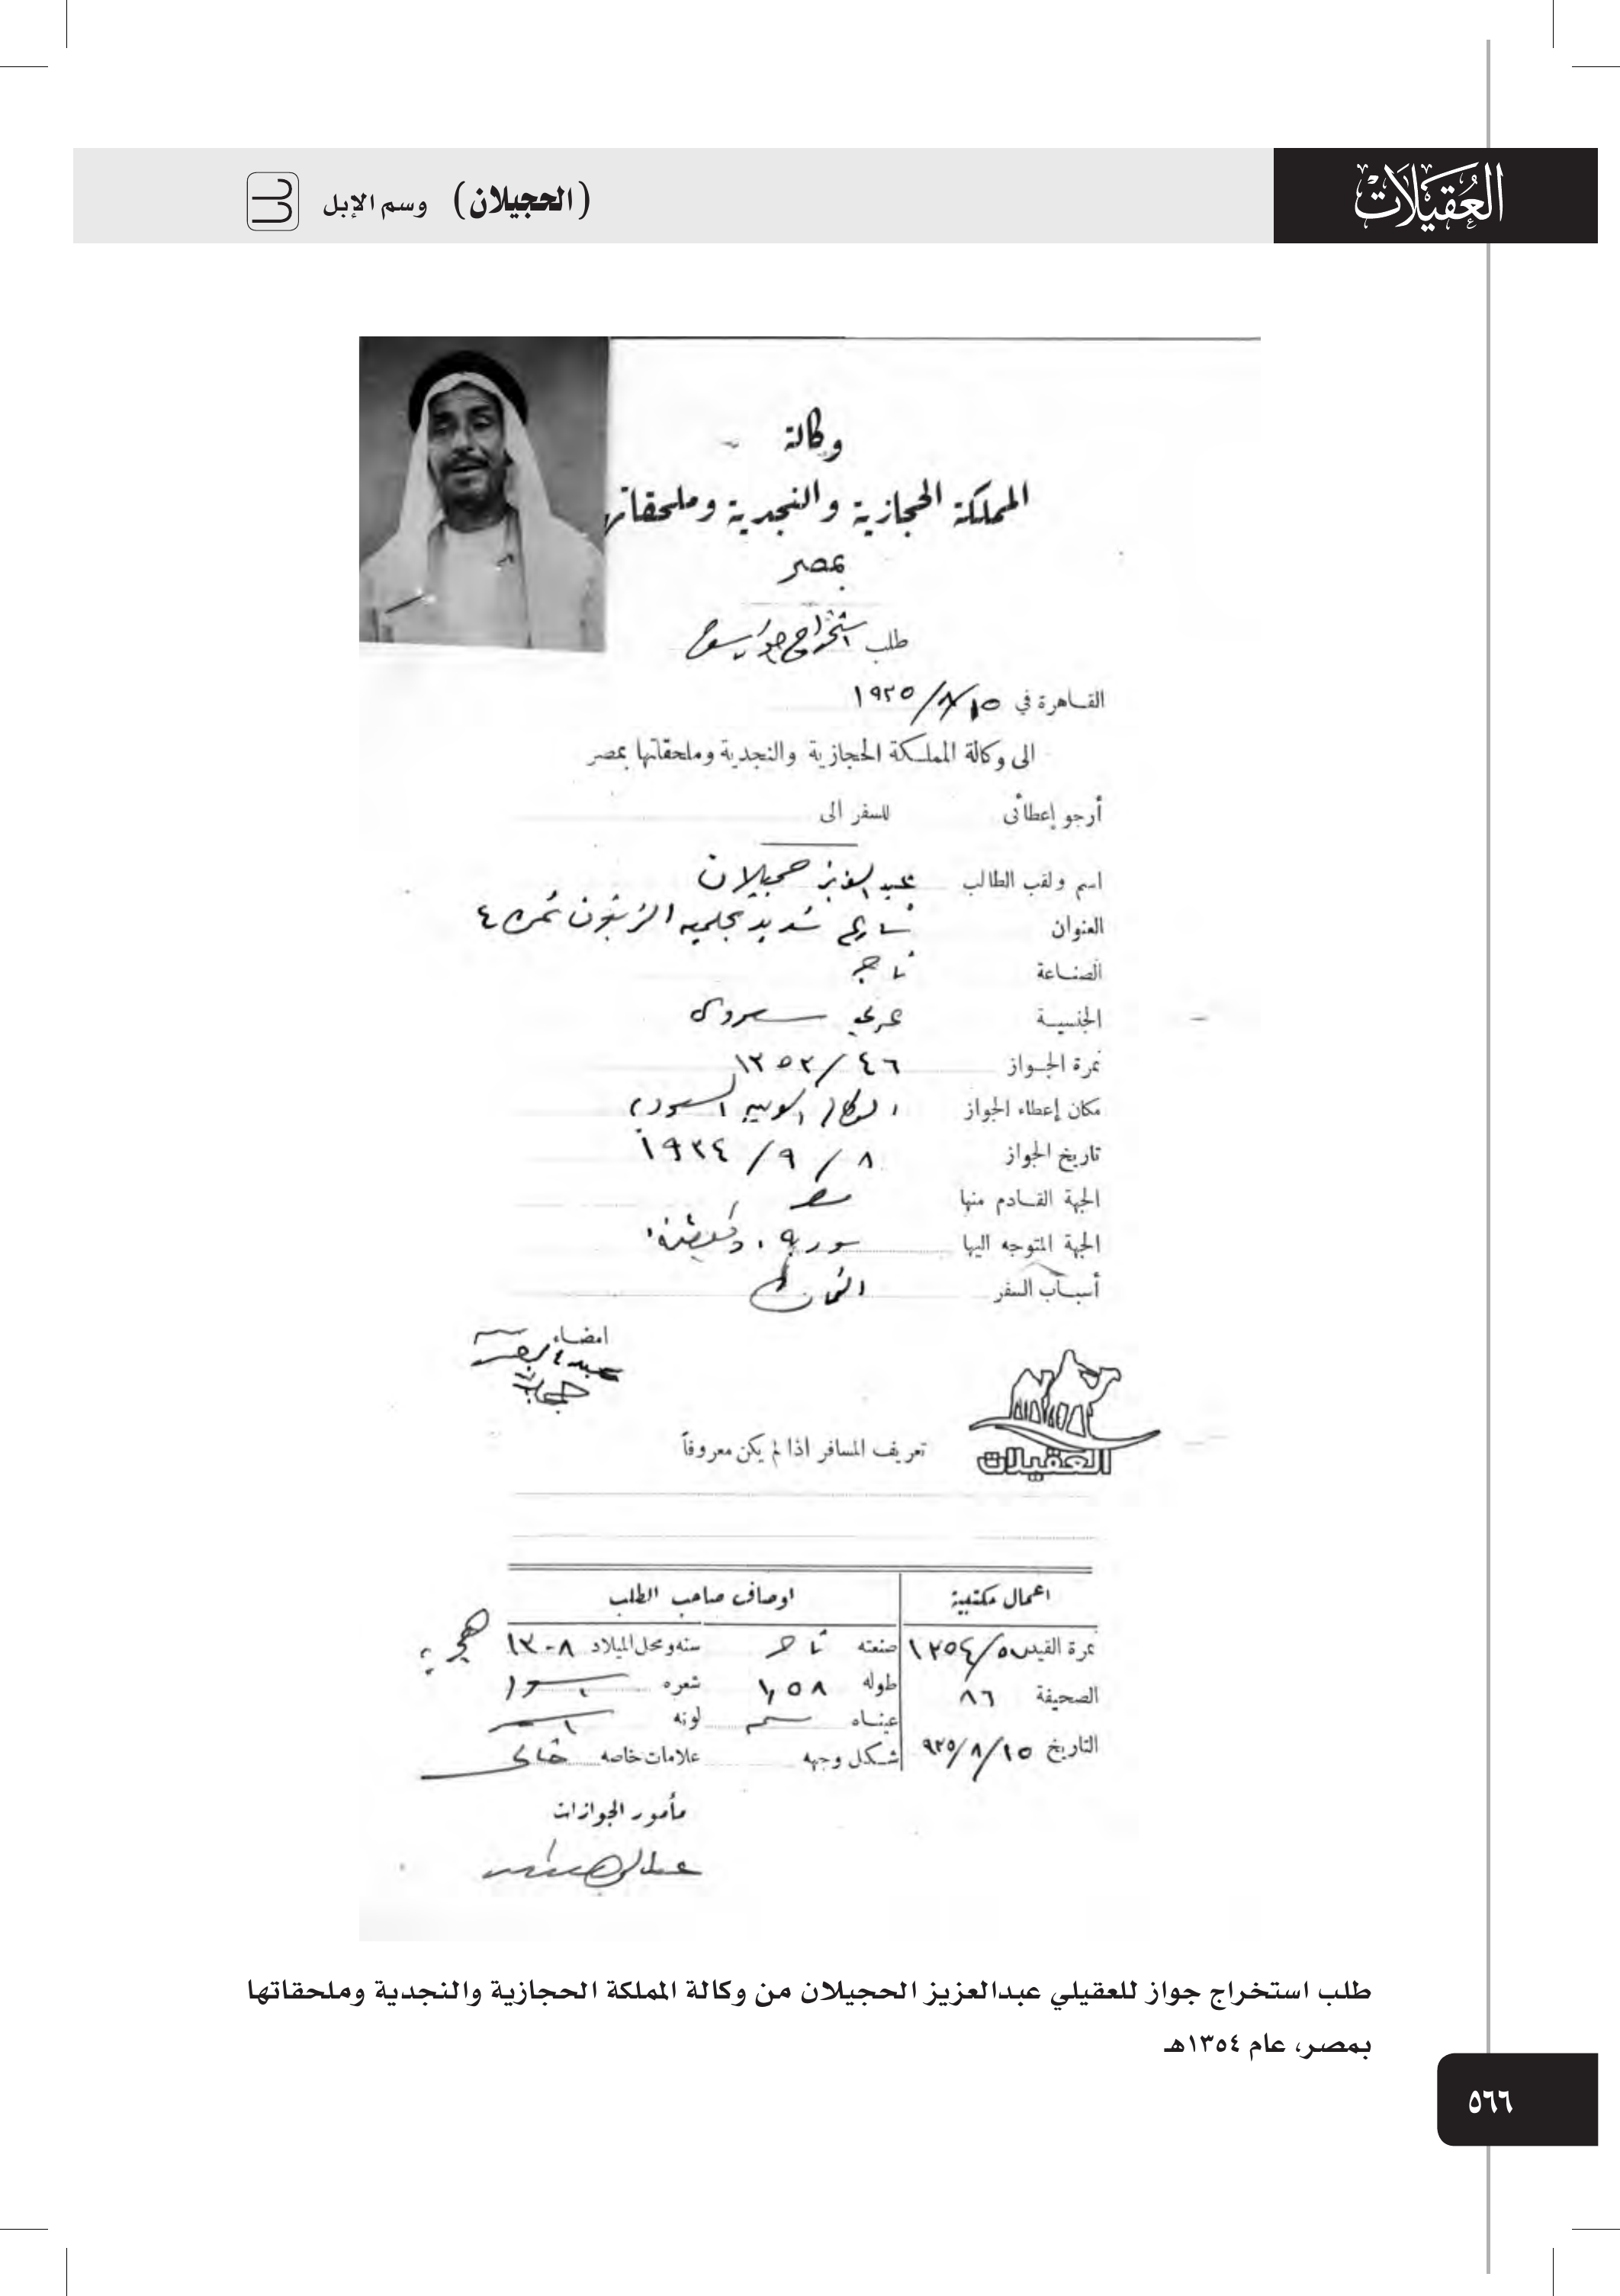 العقيلات
(الحجيلان) وسم الإبل
وكالة
المملكة الحجازية والنجدية وملحقاتها
بمصر
طلب استخراج جواز سفر
القاهرة في ١٥/٨/١٩٣٥
الى وكالة المملكة الحجازية والنجدية وملحقاتها بمصر
أرجو إعطائى للسفر الى
اسم ولقب الطالب عبد العزيز حجيلان
العنوان شارع بحلمية الزيتون نمرة ٤
الصناعة تاجر
الجنسية عربي سعودى
نمرة الجواز ٤٦/١٣٥٣
مكان إعطاء الجواز الوكالة العربية السعودية
تاريخ الجواز ٨/٩/١٩٣٤
الجهة القادم منها مصر
الجهة المتوجه اليها سوريه وفلسطين
أسباب السفر التجارة
امضاء
عبد العزيز
حجيلان
العقيلات
تعريف المسافر اذا لم يكن معروفاً
اعمال مكتبية اوصاف صاحب الطلب
نمرة القيد ٥٠/١٣٥٤ صنعته تاجر سنه ومحل الميلاد ١٣٠٨ هجريه
الصحيفة ٨٦ طوله ١,٥٨ شعره اسود
التاريخ ١٥/٨/٩٣٥ عيناه لونه اسمر
شكل وجهه علامات خاصه خالى
مأمور الجوازات
طلب استخراج جواز للعقيلي عبدالعزيز الحجيلان من وكالة المملكة الحجازية والنجدية وملحقاتها
بمصر، عام ١٣٥٤هـ
٥٦٦